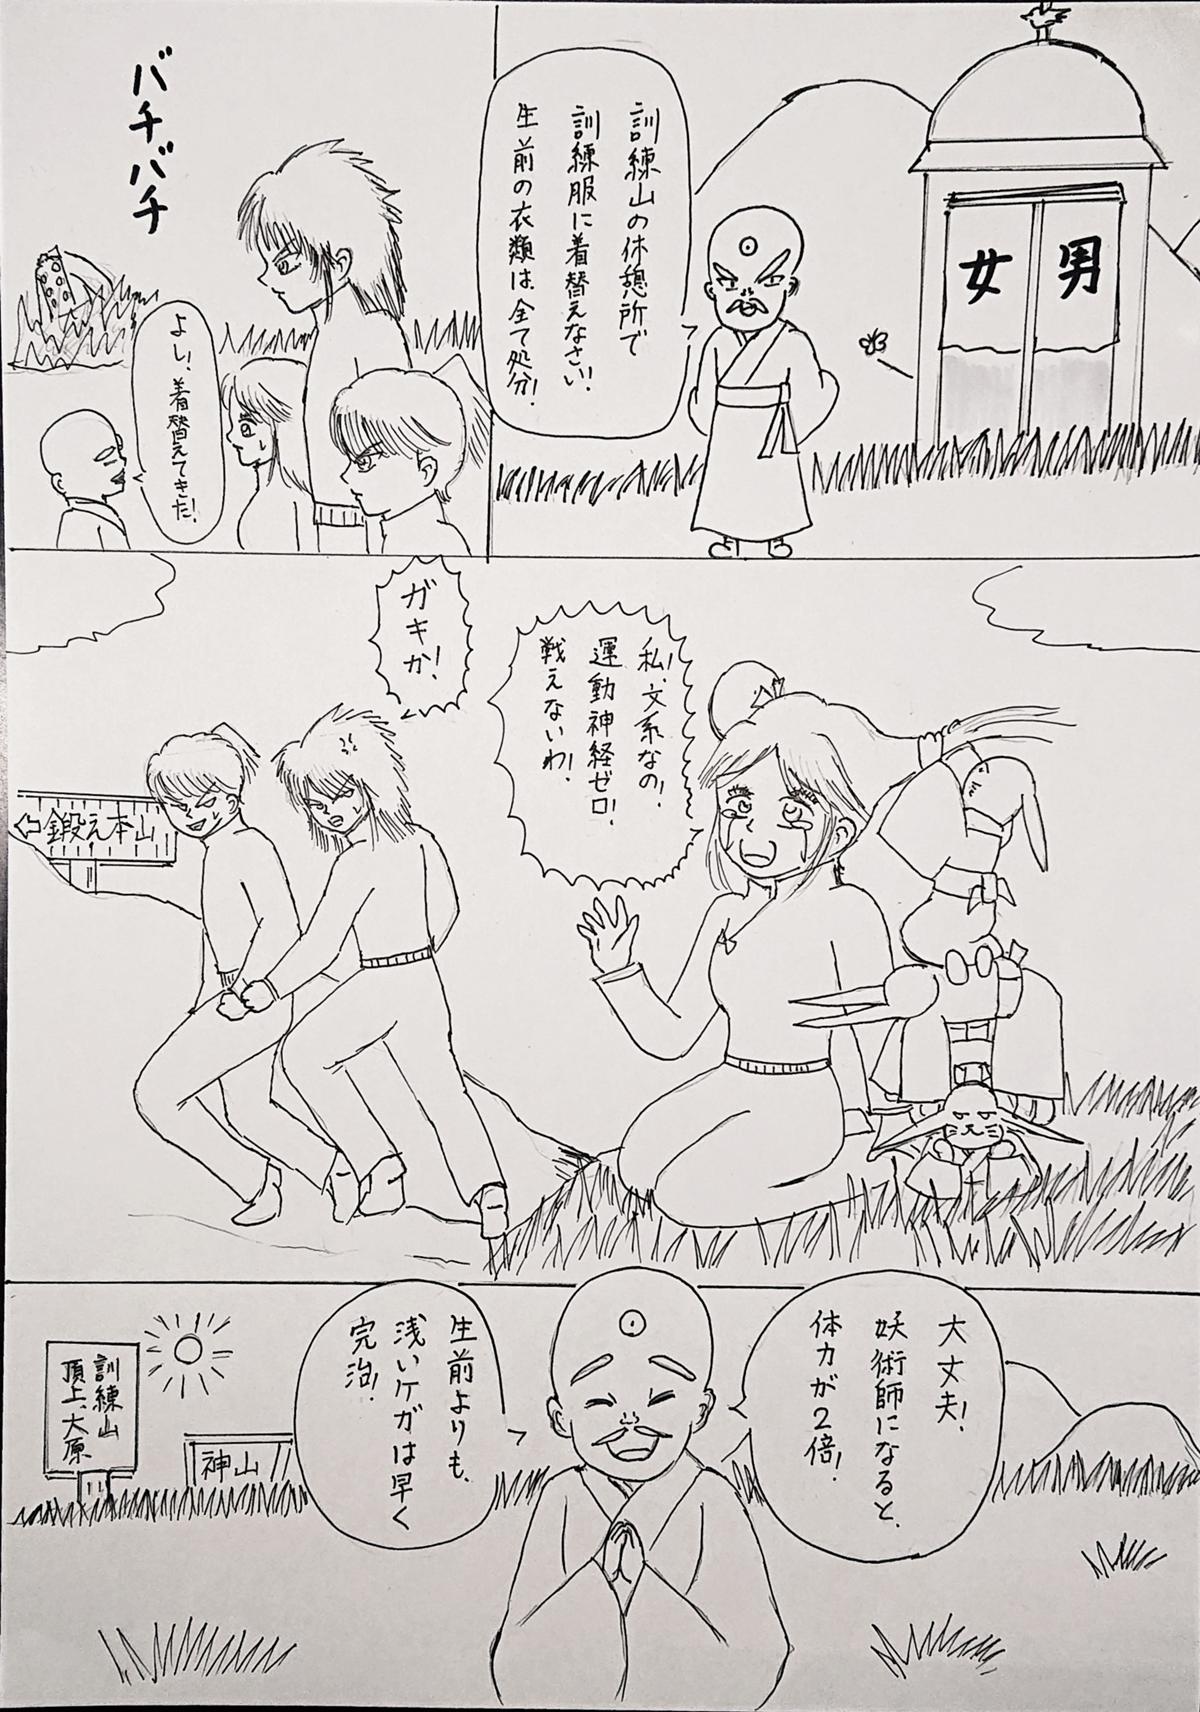 訓練山の休憩所で
訓練服に着替えなさい!
生前の衣類は全て処分!
男
女
バチバチ
よし!着替えてきた!
私!文系なの!
運動神経ゼロ!
戦えないわ!
ガキか!
鍛え本山
大丈夫!
妖術師になると、
体力が2倍!
生前よりも、
浅いケガは早く
完治!
訓練山
頂上、大原
神山